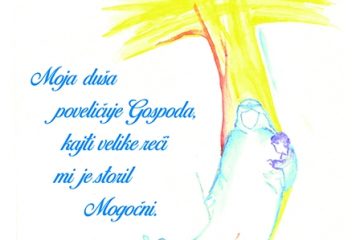 Moja duša
poveličuje Gospoda,
kajti velike reči
mi je storil
Mogočni.